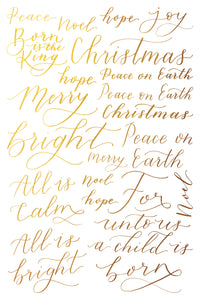 Peace Noel hope joy
Born
is the
King
Christmas
hope Peace on Earth
Merry Peace on Earth
Christmas
bright Peace on
merry Earth
All is noel For Noel
Calm hope unto us
All is a child is
bright born